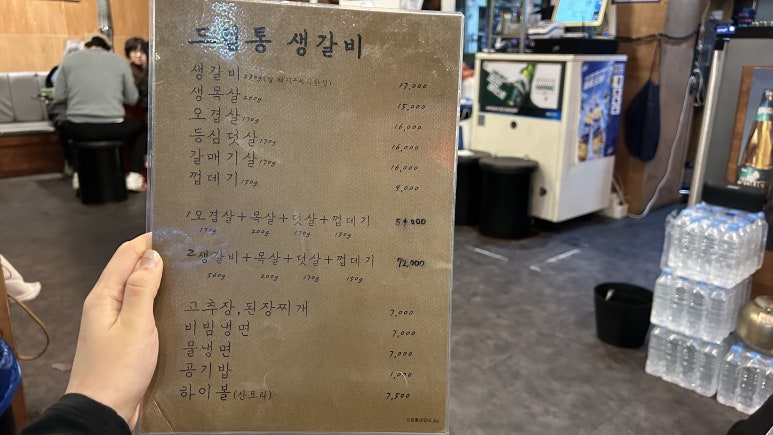 드럼통 생갈비
생갈비 17,000
생목살 200g 15,000
오겹살 170g 16,000
등심덧살 170g 16,000
갈매기살 170g 16,000
껍데기 150g 9,000
1 오겹살+목살+덧살+껍데기 54,000
170g 200g 170g 150g
2 생갈비+목살+덧살+껍데기 72,000
560g 200g 170g 150g
고추장, 된장찌개 7,000
비빔냉면 7,000
물냉면 7,000
공기밥 1,000
하이볼(산토리) 7,500